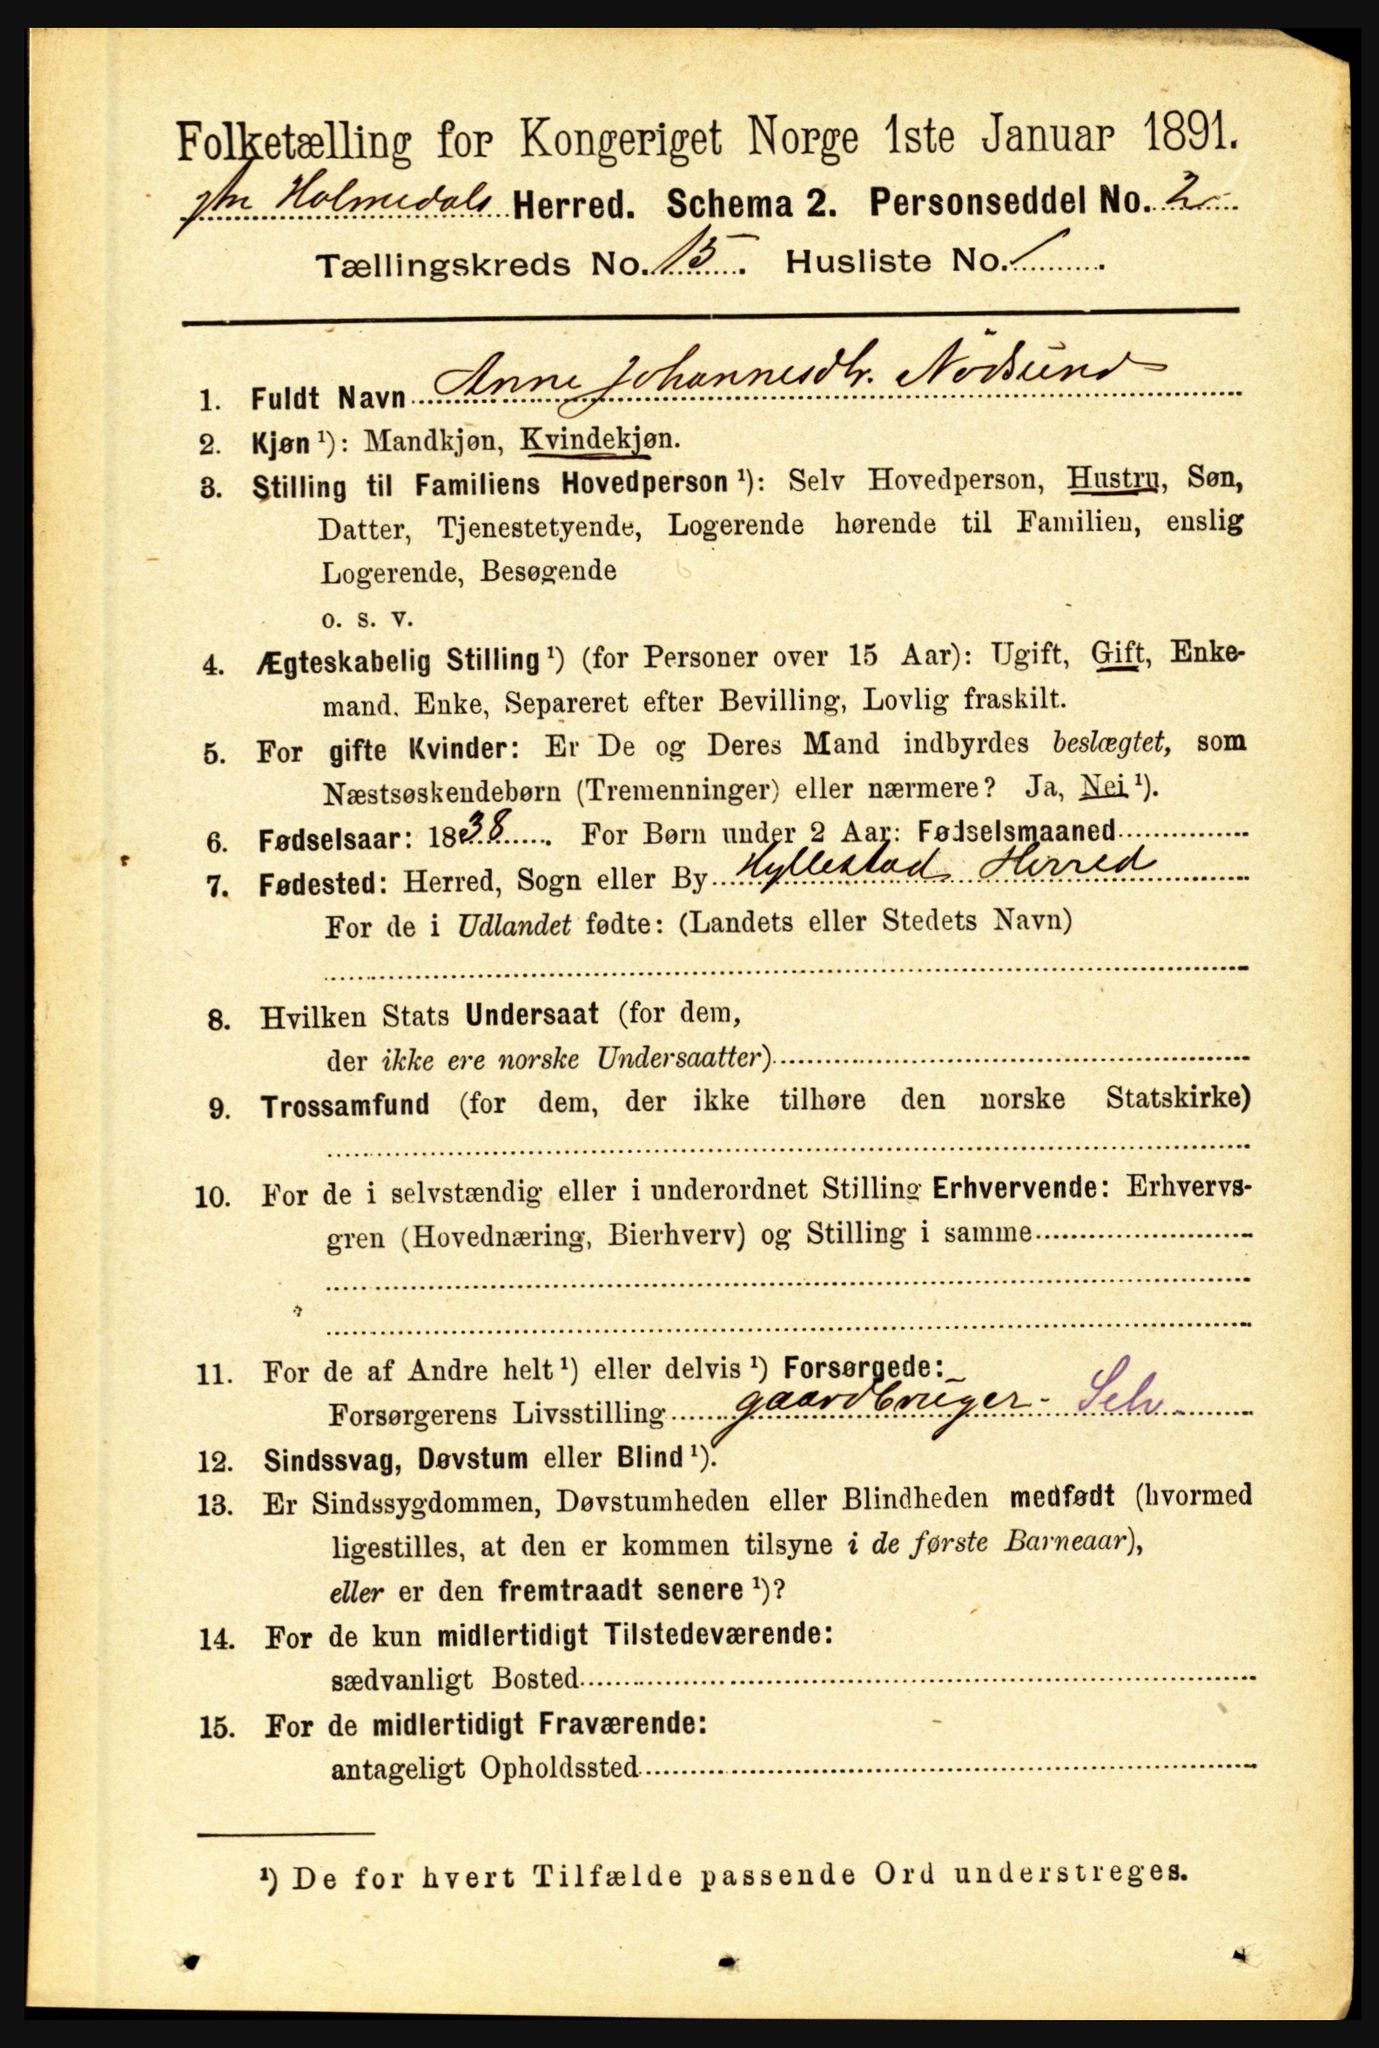 Folketælling for Kongeriget Norge 1ste Januar 1891.
Holmedals Herred. Schema 2. Personseddel No. 2
Tællingskreds No. 15. Husliste No. 1
1. Fuldt Navn Anne Johannesdtr. Nødsund
2. Kjøn ¹): Mandkjøn, Kvindekjøn.
3. Stilling til Familiens Hovedperson ¹): Selv Hovedperson, Hustru, Søn,
Datter, Tjenestetyende, Logerende hørende til Familien, enslig
Logerende, Besøgende
o. s. v.
4. Ægteskabelig Stilling ¹) (for Personer over 15 Aar): Ugift, Gift, Enke-
mand. Enke, Separeret efter Bevilling, Lovlig fraskilt.
5. For gifte Kvinder: Er De og Deres Mand indbyrdes beslægtet, som
Næstsøskendebørn (Tremenninger) eller nærmere? Ja, Nei ¹).
6. Fødselsaar: 1838. For Børn under 2 Aar: Fødselsmaaned
7. Fødested: Herred, Sogn eller By Hyllestad Herred
For de i Udlandet fødte: (Landets eller Stedets Navn)
8. Hvilken Stats Undersaat (for dem,
der ikke ere norske Undersaatter)
9. Trossamfund (for dem, der ikke tilhøre den norske Statskirke)
10. For de i selvstændig eller i underordnet Stilling Erhvervende: Erhvervs-
gren (Hovednæring, Bierhverv) og Stilling i samme
11. For de af Andre helt ¹) eller delvis ¹) Forsørgede:
Forsørgerens Livsstilling gaardbruger - Selv
12. Sindssvag, Døvstum eller Blind ¹).
13. Er Sindssygdommen, Døvstumheden eller Blindheden medfødt (hvormed
ligestilles, at den er kommen tilsyne i de første Barneaar),
eller er den fremtraadt senere ¹)?
14. For de kun midlertidigt Tilstedeværende:
sædvanligt Bosted
15. For de midlertidigt Fraværende:
antageligt Opholdssted
¹) De for hvert Tilfælde passende Ord understreges.